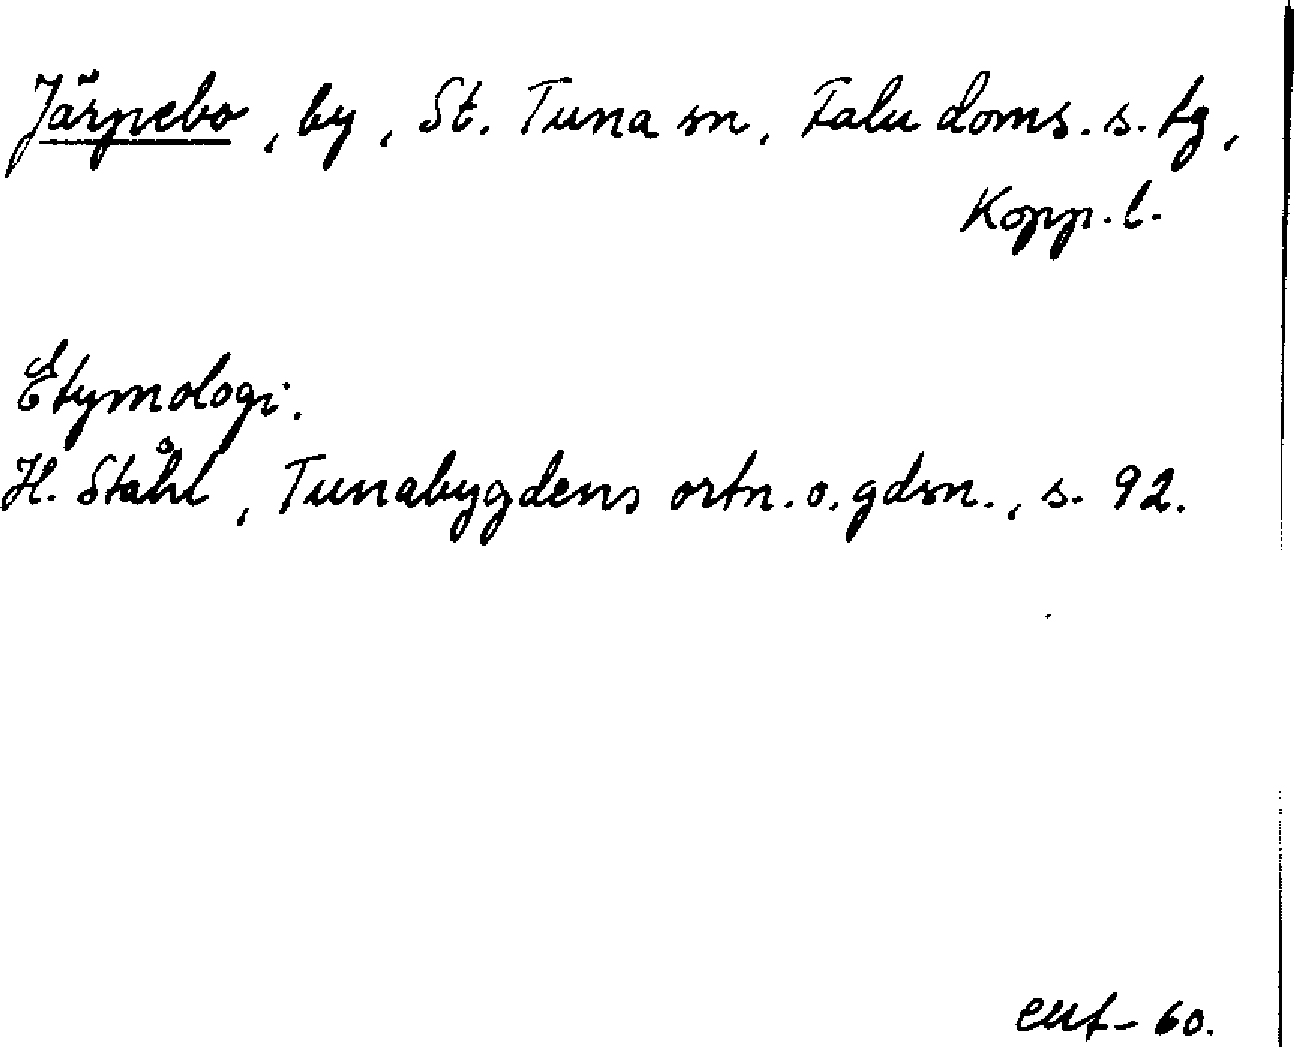 Järpebo, by, St. Tuna sn, Falu doms. s. tg,
Kopp. l.
Etymologi.
H. Ståhl, Tunabygdens ortn. o. gdsn., s. 92.
60.